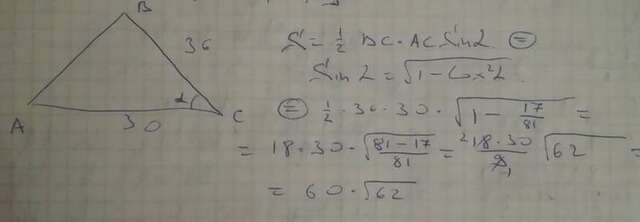 B
36
α
A
30
C
S = 1/2 BC · AC Sin α ⊜
Sin α = √(1 - Cos²α)
⊜ 1/2 · 36 · 30 · √(1 - 17/81) =
= 18 · 30 · √((81 - 17)/81) = ²18 · 30/9₁ √62 =
= 60 · √62